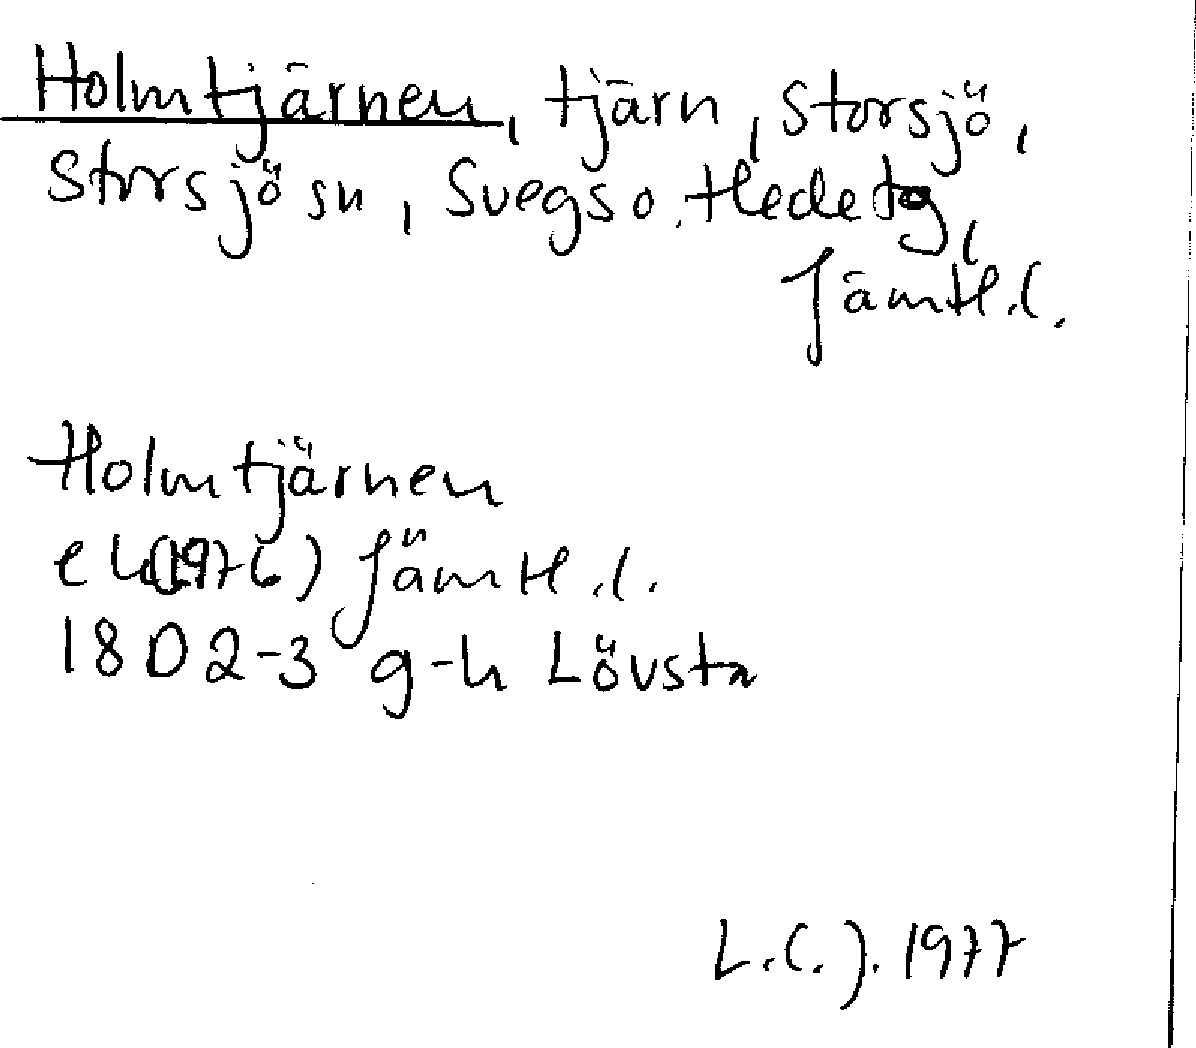 Holmtjärnen, tjärn, Storsjö,
Storsjö sn, Svegs o. Hede tg,
Jämtl.l.
Holmtjärnen
ek(1976) Jämtl.l.
18D 2-3 g-h Lövsta
L.C.J. 1977